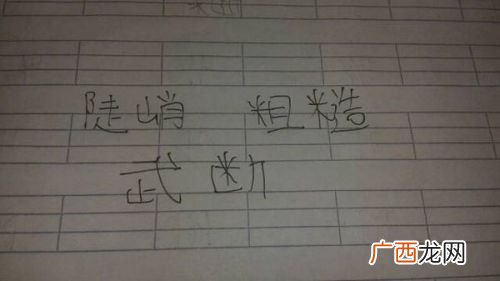 陡峭 粗糙
武断
广西龙网